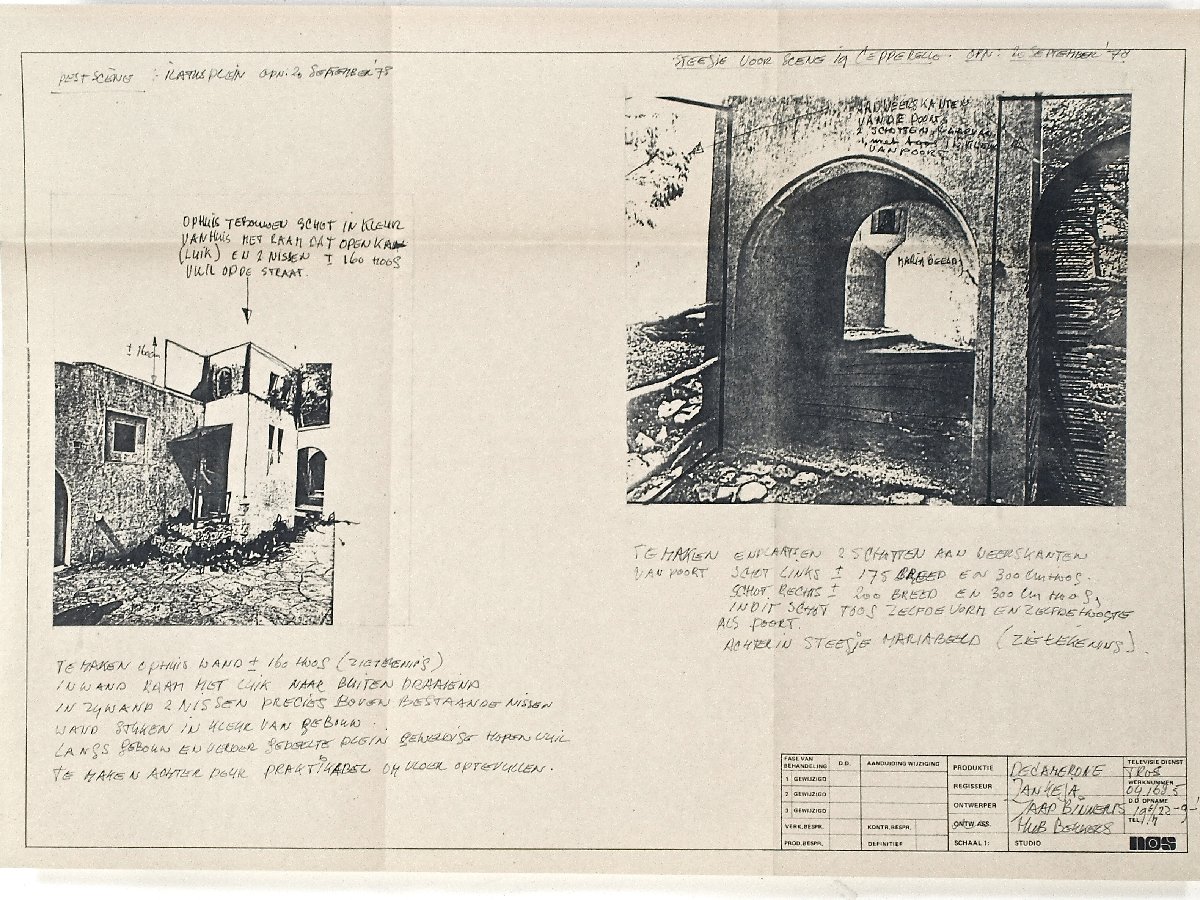 PESTSCÈNE : RATHSPLEIN OPN: 20 SEPTEMBER '78
OPHUIS TEBOUWEN SCHOT IN KLEUR
VANHUIS MET RAAM DAT OPEN KAN
(LUIK) EN 2 NISSEN ± 160 HOOG
VUIL OP DE STRAAT.
± 160
TE MAKEN OPHUIS WAND ± 160 HOOG (ZIE TEKENING)
IN WAND RAAM MET LUIK NAAR BUITEN DRAAIEND
IN ZYWAND 2 NISSEN PRECIES BOVEN BESTAANDE NISSEN
WAND STUKEN IN KLEUR VAN GEBOUW.
LANGS GEBOUW EN VERDER GEDEELTE PLEIN GEWELDIGE HOPEN VUIL
TE MAKEN ACHTER DEUR PRAKTIKABEL OM VLOER OPTEVULLEN.
STEEGJE VOOR SCENE 19 CEPPERELLO. OPN: 20 SEPTEMBER '78
AAN WEERSKANTEN
VAN DE POORT
2 SCHOTTEN
VAN POORT
MARIABEELD
TE MAKEN EN PLAATSEN 2 SCHOTTEN AAN WEERSKANTEN
VAN POORT SCHOT LINKS ± 175 BREED EN 300 CM HOOG.
SCHOT RECHTS ± 200 BREED EN 300 CM HOOG,
IN DIT SCHOT TOOG ZELFDE VORM EN ZELFDE HOOGTE
ALS POORT.
ACHTER IN STEEGJE MARIABEELD (ZIE TEKENING).
FASE VAN BEHANDELING D.D. AANDUIDING WIJZIGING
1 GEWIJZIGD
2 GEWIJZIGD
3 GEWIJZIGD
VERK.BESPR. KONTR.BESPR.
PROD.BESPR. DEFINITIEF
PRODUKTIE DECAMERONE
REGISSEUR JAN KEJA
ONTWERPER JAAP BINNERTS
ONTW.ASS. HUB BEKKERS
SCHAAL 1: STUDIO
TELEVISIE DIENST
TROS
WERKNUMMER
04.168.5
D.D. OPNAME
19/22-9-'
TEL.
nos